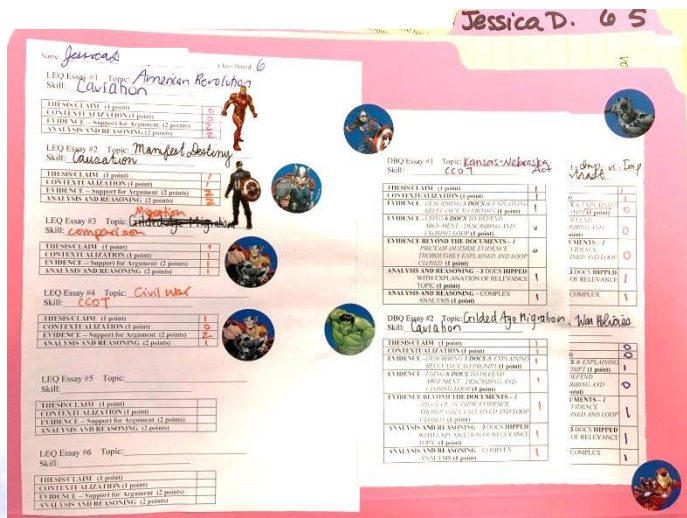 Jessica D. 6 5
Name Jessica D Class Period 6
LEQ Essay #1 Topic: American Revolution
Skill: Causation
THESIS/CLAIM (1 point) 0
CONTEXTUALIZATION (1 point) 0
EVIDENCE – Support for Argument (2 points) 2
ANALYSIS AND REASONING (2 points) 2
LEQ Essay #2 Topic: Manifest Destiny
Skill: Causation
THESIS/CLAIM (1 point) 1
CONTEXTUALIZATION (1 point) 1
EVIDENCE – Support for Argument (2 points) 2
ANALYSIS AND REASONING (2 points) 2
Migration
LEQ Essay #3 Topic: Gilded Age Migration
Skill: comparison
THESIS/CLAIM (1 point)
CONTEXTUALIZATION (1 point) 1
EVIDENCE – Support for Argument (2 points) 1
ANALYSIS AND REASONING (2 points) 1
LEQ Essay #4 Topic: Civil War
Skill: CCOT
THESIS/CLAIM (1 point) 1
CONTEXTUALIZATION (1 point) 0
EVIDENCE – Support for Argument (2 points) 2
ANALYSIS AND REASONING (2 points) 1
LEQ Essay #5 Topic:
Skill:
THESIS/CLAIM (1 point)
CONTEXTUALIZATION (1 point)
EVIDENCE – Support for Argument (2 points)
ANALYSIS AND REASONING (2 points)
LEQ Essay #6 Topic:
Skill:
THESIS/CLAIM (1 point)
CONTEXTUALIZATION (1 point)
EVIDENCE – Support for Argument (2 points)
ANALYSIS AND REASONING (2 points)
DBQ Essay #1 Topic: Kansas-Nebraska
Skill: CCOT Act
THESIS/CLAIM (1 point) 1
CONTEXTUALIZATION (1 point) 1
EVIDENCE – DESCRIBING 3 DOCS & EXPLAINING
RELEVANCE TO PROMPT (1 point) 1
EVIDENCE – USING 6 DOCS TO DEFEND
ARGUMENT: DESCRIBING AND
CLOSING LOOP (1 point)
EVIDENCE BEYOND THE DOCUMENTS – 1
PIECE OF OUTSIDE EVIDENCE
THOROUGHLY EXPLAINED AND LOOP
CLOSED (1 point)
ANALYSIS AND REASONING – 3 DOCS HIPPED
WITH EXPLANATION OF RELEVANCE
TOPIC (1 point) 1
ANALYSIS AND REASONING – COMPLEX
ANALYSIS (1 point) 1
DBQ Essay #2 Topic: Gilded Age Migration
Skill: Causation
THESIS/CLAIM (1 point) 1
CONTEXTUALIZATION (1 point) 1
EVIDENCE – DESCRIBING 3 DOCS & EXPLAINING
RELEVANCE TO PROMPT (1 point) 1
EVIDENCE – USING 6 DOCS TO DEFEND
ARGUMENT: DESCRIBING AND
CLOSING LOOP (1 point) 1
EVIDENCE BEYOND THE DOCUMENTS – 1
PIECE OF OUTSIDE EVIDENCE
CLOSED (1 point) 1
ANALYSIS AND REASONING – 3 DOCS HIPPED
WITH EXPLANATION OF RELEVANCE
(1 point) 1
ANALYSIS AND REASONING – COMPLEX
ANALYSIS (1 point) 1
3 DOCS HIPPED
OF RELEVANCE
COMPLEX
War Policies
3 DOCS HIPPED
OF RELEVANCE
COMPLEX